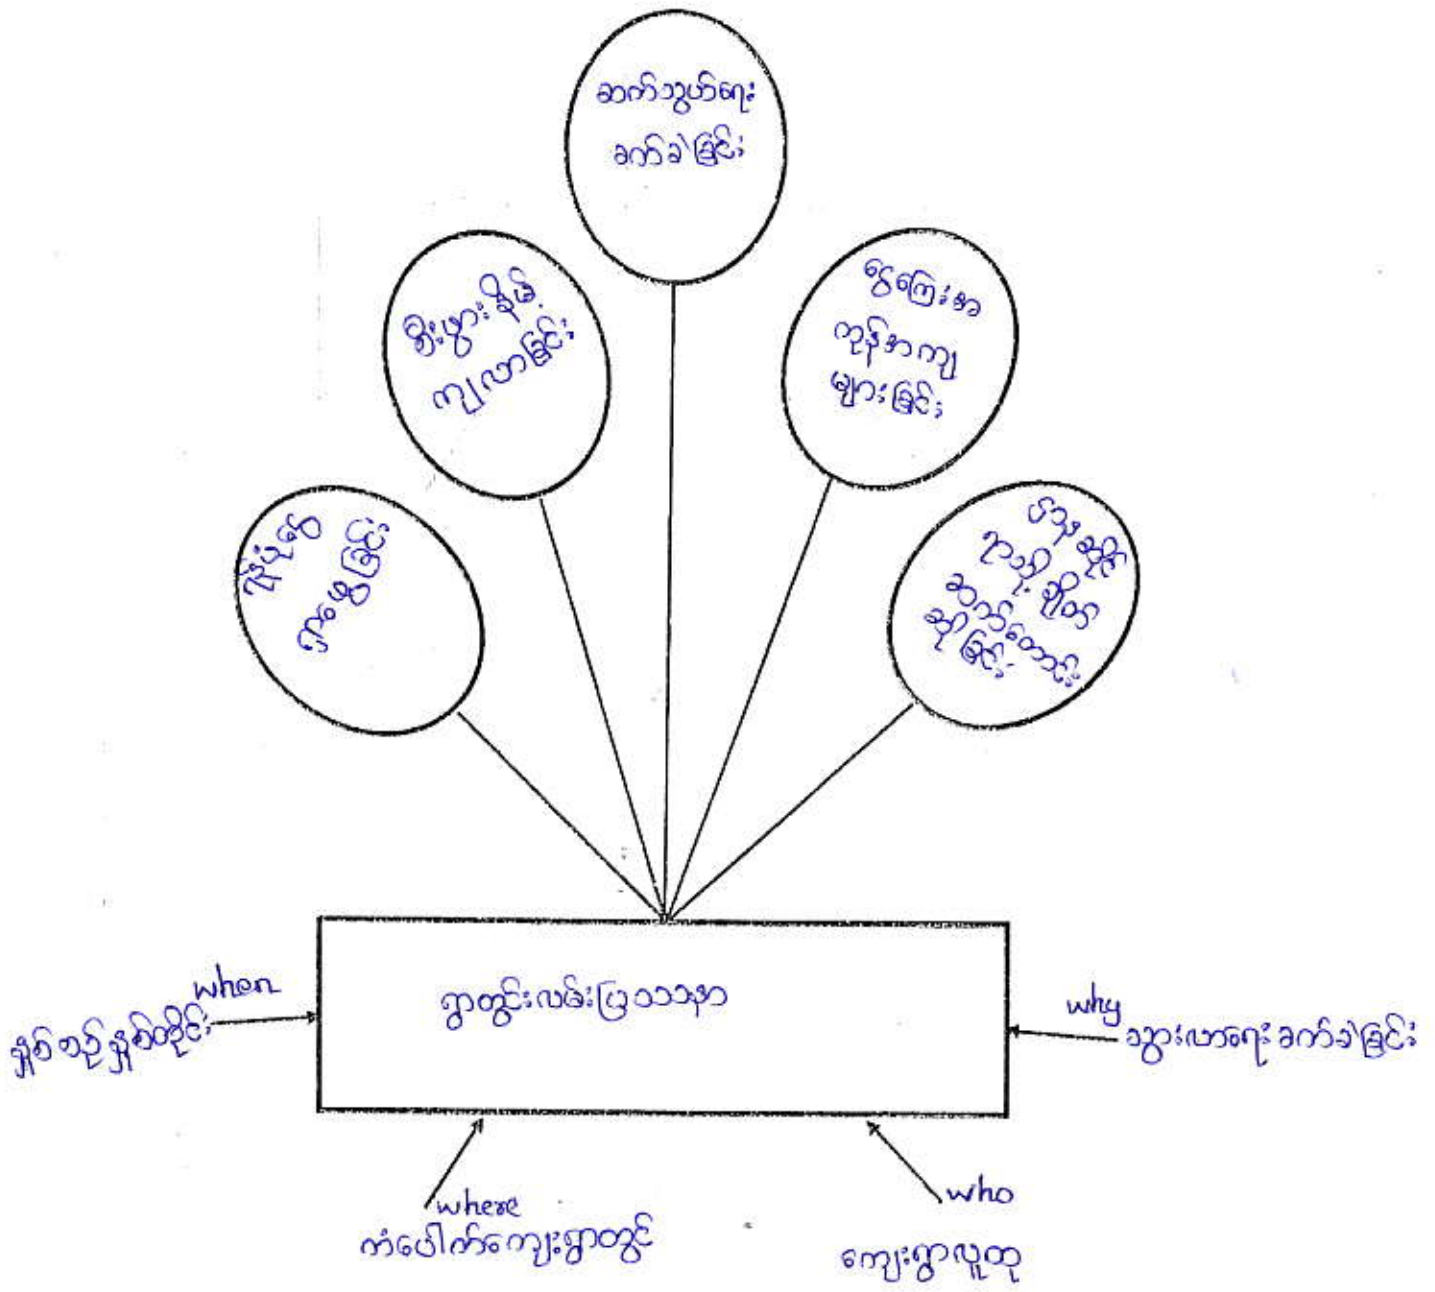 ဆက်သွယ်ရေး
ခက်ခဲခြင်း
စီးပွားနိမ့်
ကျလာခြင်း
ငွေကြေးအ
ကုန်အကျ
များခြင်း
ရန်ပုံငွေ
ရှာဖွေခြင်း
ဌာနဆိုင်
ရာသို့ ချိတ်
ဆက်တောင်း
ဆိုခြင်း
ရွာတွင်းလမ်းပြဿနာ
when
နှစ်စဉ်နှစ်တိုင်း
why
သွားလာရေးခက်ခဲခြင်း
where
ကံပေါက်ကျေးရွာတွင်
who
ကျေးရွာလူထု